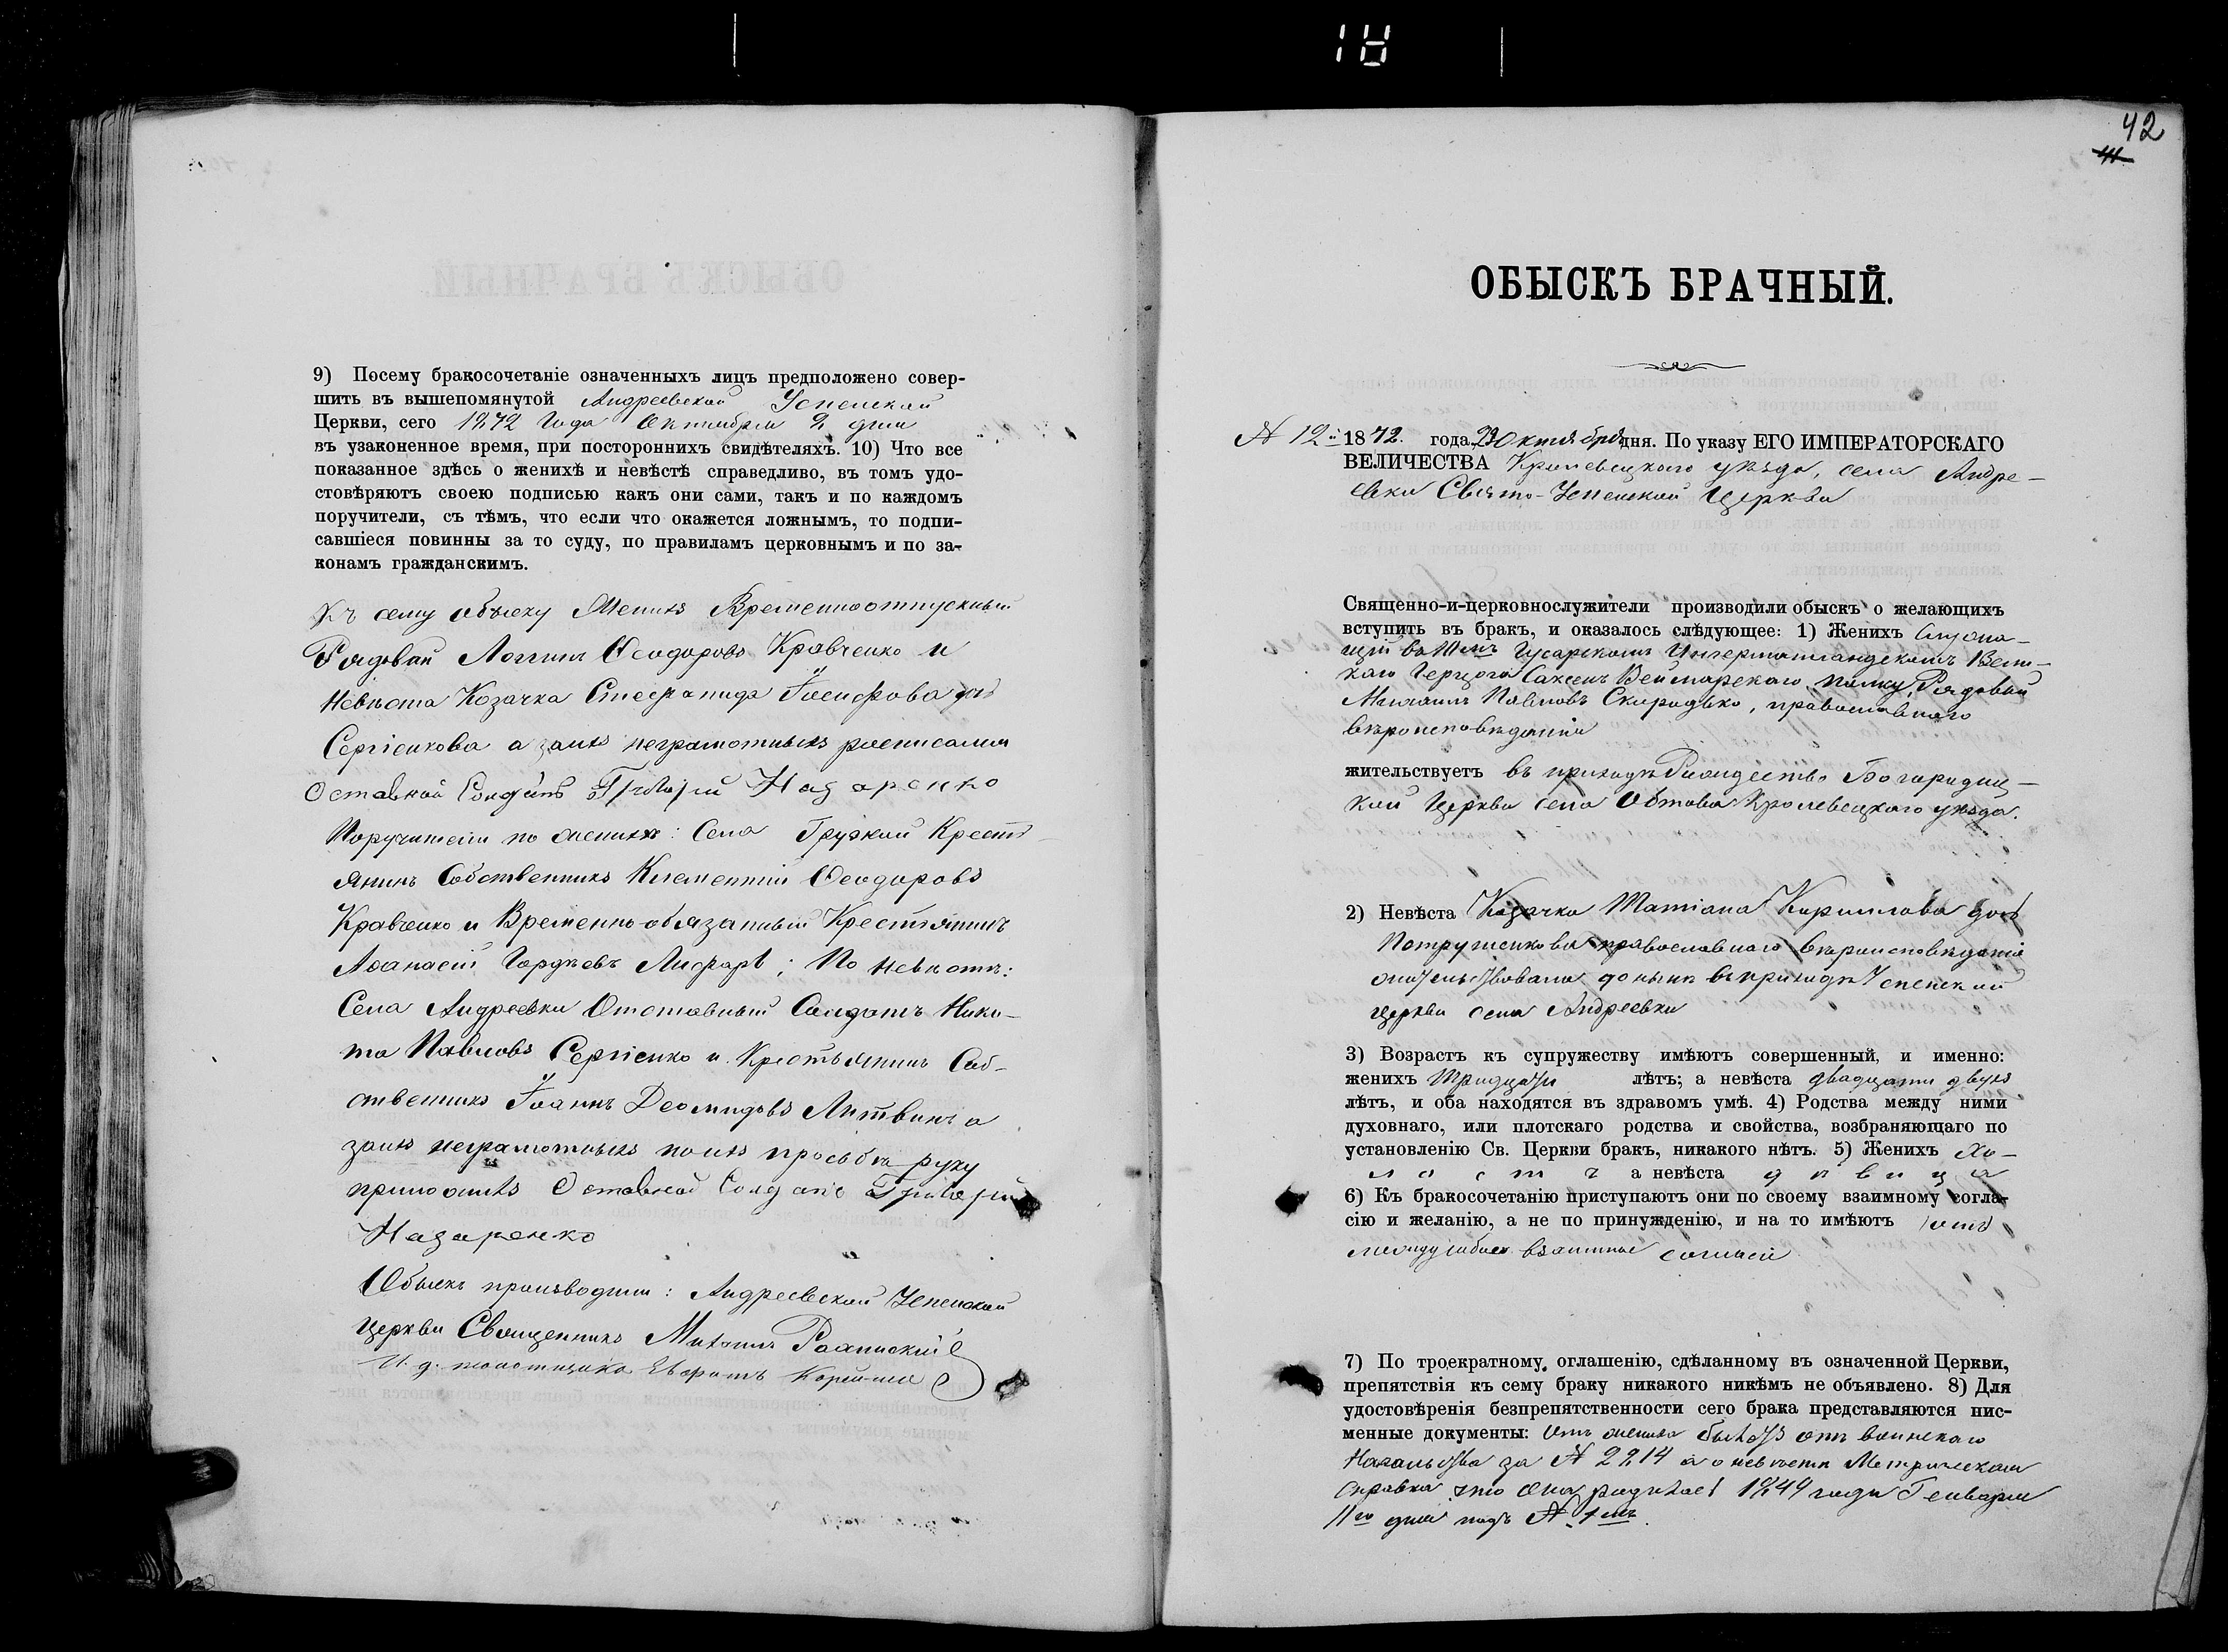 9) Посему бракосочетаніе означенныхъ лицъ предположено совер-
шить въ вышепомянутой Андреевской Успенской
Церкви, сего 1872 Года Октября 2 дня
въ узаконенное время, при постороннихъ свидѣтеляхъ. 10) Что все
показанное здѣсь о женихѣ и невѣстѣ справедливо, въ томъ удо-
стовѣряютъ своею подписью какъ они сами, такъ и по каждомъ
поручители, съ тѣмъ, что если что окажется ложнымъ, то подпи-
савшіеся повинны за то суду, по правиламъ церковнымъ и по за-
конамъ гражданскимъ.
Къ сему обыску Женихъ Временноотпускный
Рядовой Логгинъ Ѳеодоровъ Кравченко и
Невѣста Козачка Стефанида Іосифова дчь
Сергіенкова а заихъ неграмотныхъ росписался
Оставной Солдатъ Григорій Назаренко
Поручители по женихѣ: Села Грузкой Кресть
янинъ Собственникъ Климентій Ѳеодоровъ
Кравченко и Временно-обязанный Крестьянинъ
Аѳанасій Гордѣевъ Лифарь; По невѣстѣ:
Села Андреевки Отставный Солдатъ Ники-
та Павловъ Сергіенко и Крестьянинъ Соб-
ственникъ Іоаннъ Деомидовъ Литвинъ а
заихъ неграмотныхъ поихъ просьбѣ руку
приложилъ Оставной Солдатъ Григорій
Назаренко
Обыскъ производили: Андреевской Успенской
Церкви Священникъ Михаилъ
И. д. псаломщика Евфимъ
42
41
ОБЫСКЪ БРАЧНЫЙ.
№ 12й 1872. года 29 Октября дня. По указу ЕГО ИМПЕРАТОРСКАГО
ВЕЛИЧЕСТВА Кролевецкаго уѣзда, села Андре-
евки Свято-Успенской Церкви
Священно-и-церковнослужители производили обыскъ о желающихъ
вступить въ бракъ, и оказалось слѣдующее: 1) Женихъ Служа-
щій въ Гусарскомъ Ингерманландскомъ Вели-
каго Герцога Саксенъ Веймарскаго полку, Рядовой
Михаилъ Павловъ Скиридько, православнаго
вѣроисповѣданія
жительствуетъ въ приходѣ Рождество Богородиц-
кой Церкви села Обтова Кролевецкаго уѣзда.
2) Невѣста Козачка Татіана Кириллова дочь
православнаго вѣроисповѣданія
жительствовала до нынѣ въ приходѣ Успенской
церкви села Андреевки
3) Возрастъ къ супружеству имѣютъ совершенный, и именно:
женихъ Тридцати лѣтъ; а невѣста двадцати двухъ
лѣтъ, и оба находятся въ здравомъ умѣ. 4) Родства между ними
духовнаго, или плотскаго родства и свойства, возбраняющаго по
установленію Св. Церкви бракъ, никакого нѣтъ. 5) Женихъ Хо-
лостъ а невѣста дѣвица
6) Къ бракосочетанію приступаютъ они по своему взаимному согла-
сію и желанію, а не по принужденію, и на то имѣютъ
междусобою взаимное согласіе
7) По троекратному оглашенію, сдѣланному въ означенной Церкви,
препятствія къ сему браку никакого никѣмъ не объявлено. 8) Для
удостовѣренія безпрепятственности сего брака представляются пис-
менные документы: Отъ жениха билетъ отъ воинскаго
Начальства за № 2214 а о невѣстѣ Метрическая
справка что она родилась 1849 года Генваря
11го дня подъ № 1мъ.